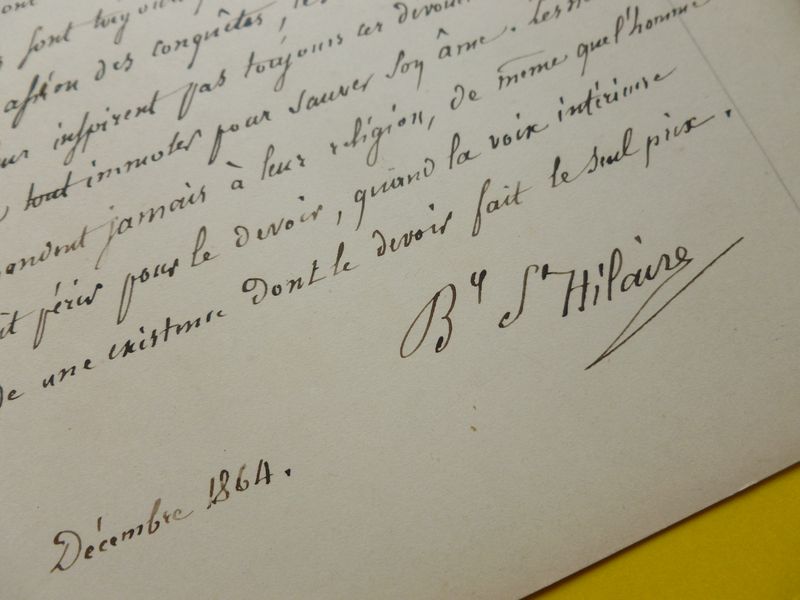 sont toujours
des conquêtes, 
inspirent pas toujours ces
tout immoler pour sauver son âme.
jamais à leur religion, de même que l'homme
périr pour le devoir, quand la voix intérieure
de une existence dont le devoir fait le seul prix.
By St Hilaire
Décembre 1864.